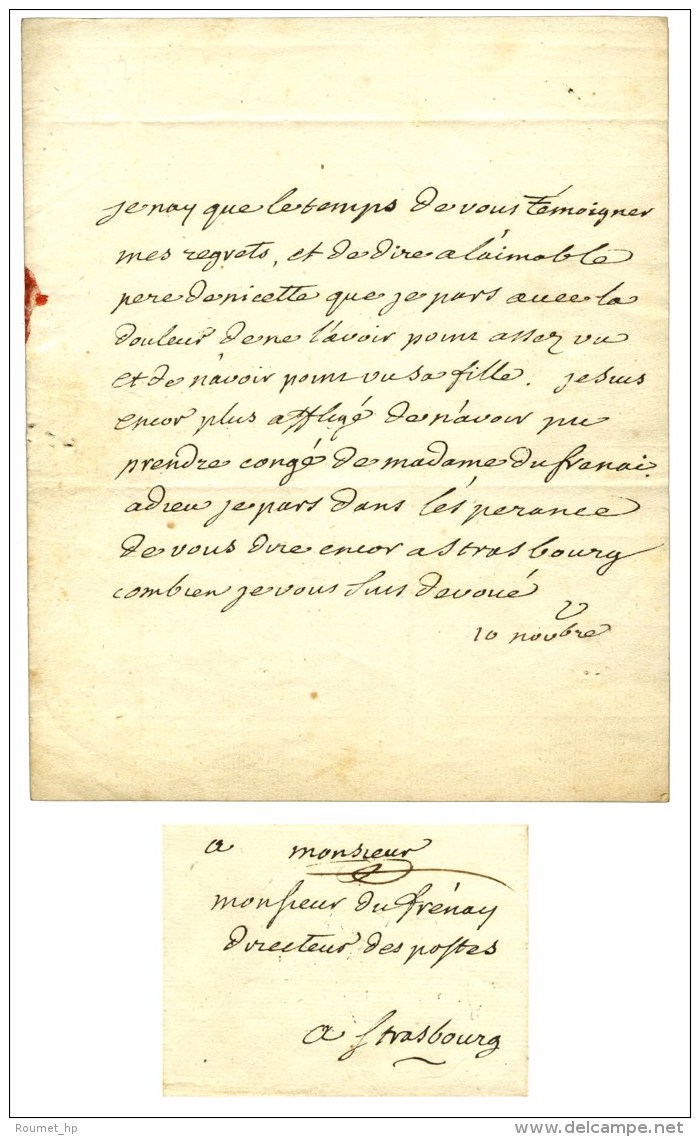 je nay que le temps de vous témoigner
mes regrets, et de dire a laimable
pere de nicette que je pars avec la
douleur de ne l'avoir point assez vu
et de n'avoir point vu sa fille. je suis
encor plus affligé de n'avoir pu
prendre congé de madame du franai.
adieu je pars dans lésperance
de vous dire encor a strasbourg
combien je vous suis devoué
V
10 novbre
a monsieur
monsieur du frénay
directeur des postes
a strasbourg
Roumet_hp
delcampe.net